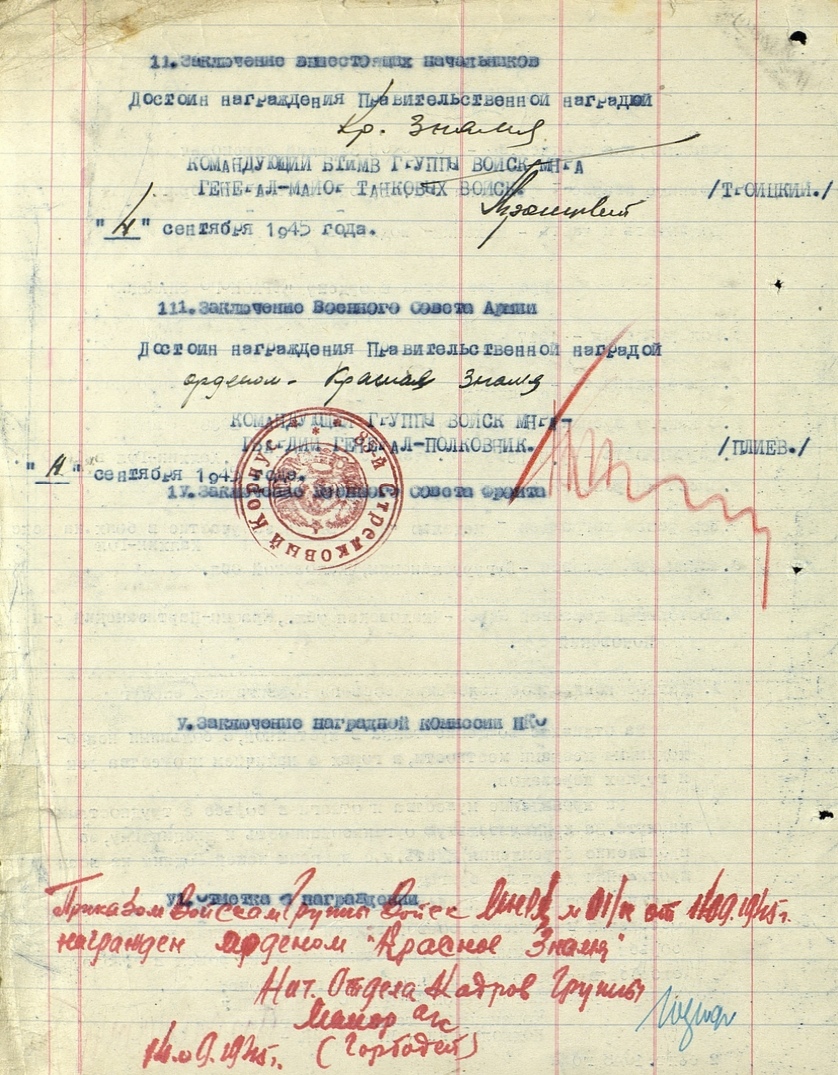 11. Заключение вышестоящих начальников
Достоин награждения Правительственной наградой
Кр. Знамя
КОМАНДУЮЩИЙ БТИМВ ГРУППЫ ВОЙСК МНРА
ГЕНЕРАЛ-МАЙОР ТАНКОВЫХ ВОЙСК. /ТРОИЦКИЙ./
"11" сентября 1945 года.
111. Заключение Военного Совета Армии
Достоин награждения Правительственной наградой
орденом - Красная Знамя
КОМАНДУЮЩИЙ ГРУППЫ ВОЙСК МНРА
ГВАРДИИ ГЕНЕРАЛ-ПОЛКОВНИК. /ПЛИЕВ./
"11" сентября 1945 года.
1У. Заключение Военного Совета Фронта
Стрелковый Корпус
У. Заключение наградной комиссии НКО
У1. Отметка о награждении
Приказом Войскам Группы Войск МНРА № 01/н от 11.09.1945г.
награжден Орденом "Красное Знамя"
Нач. Отдела Кадров Группы
Майор
14.09.1945г.